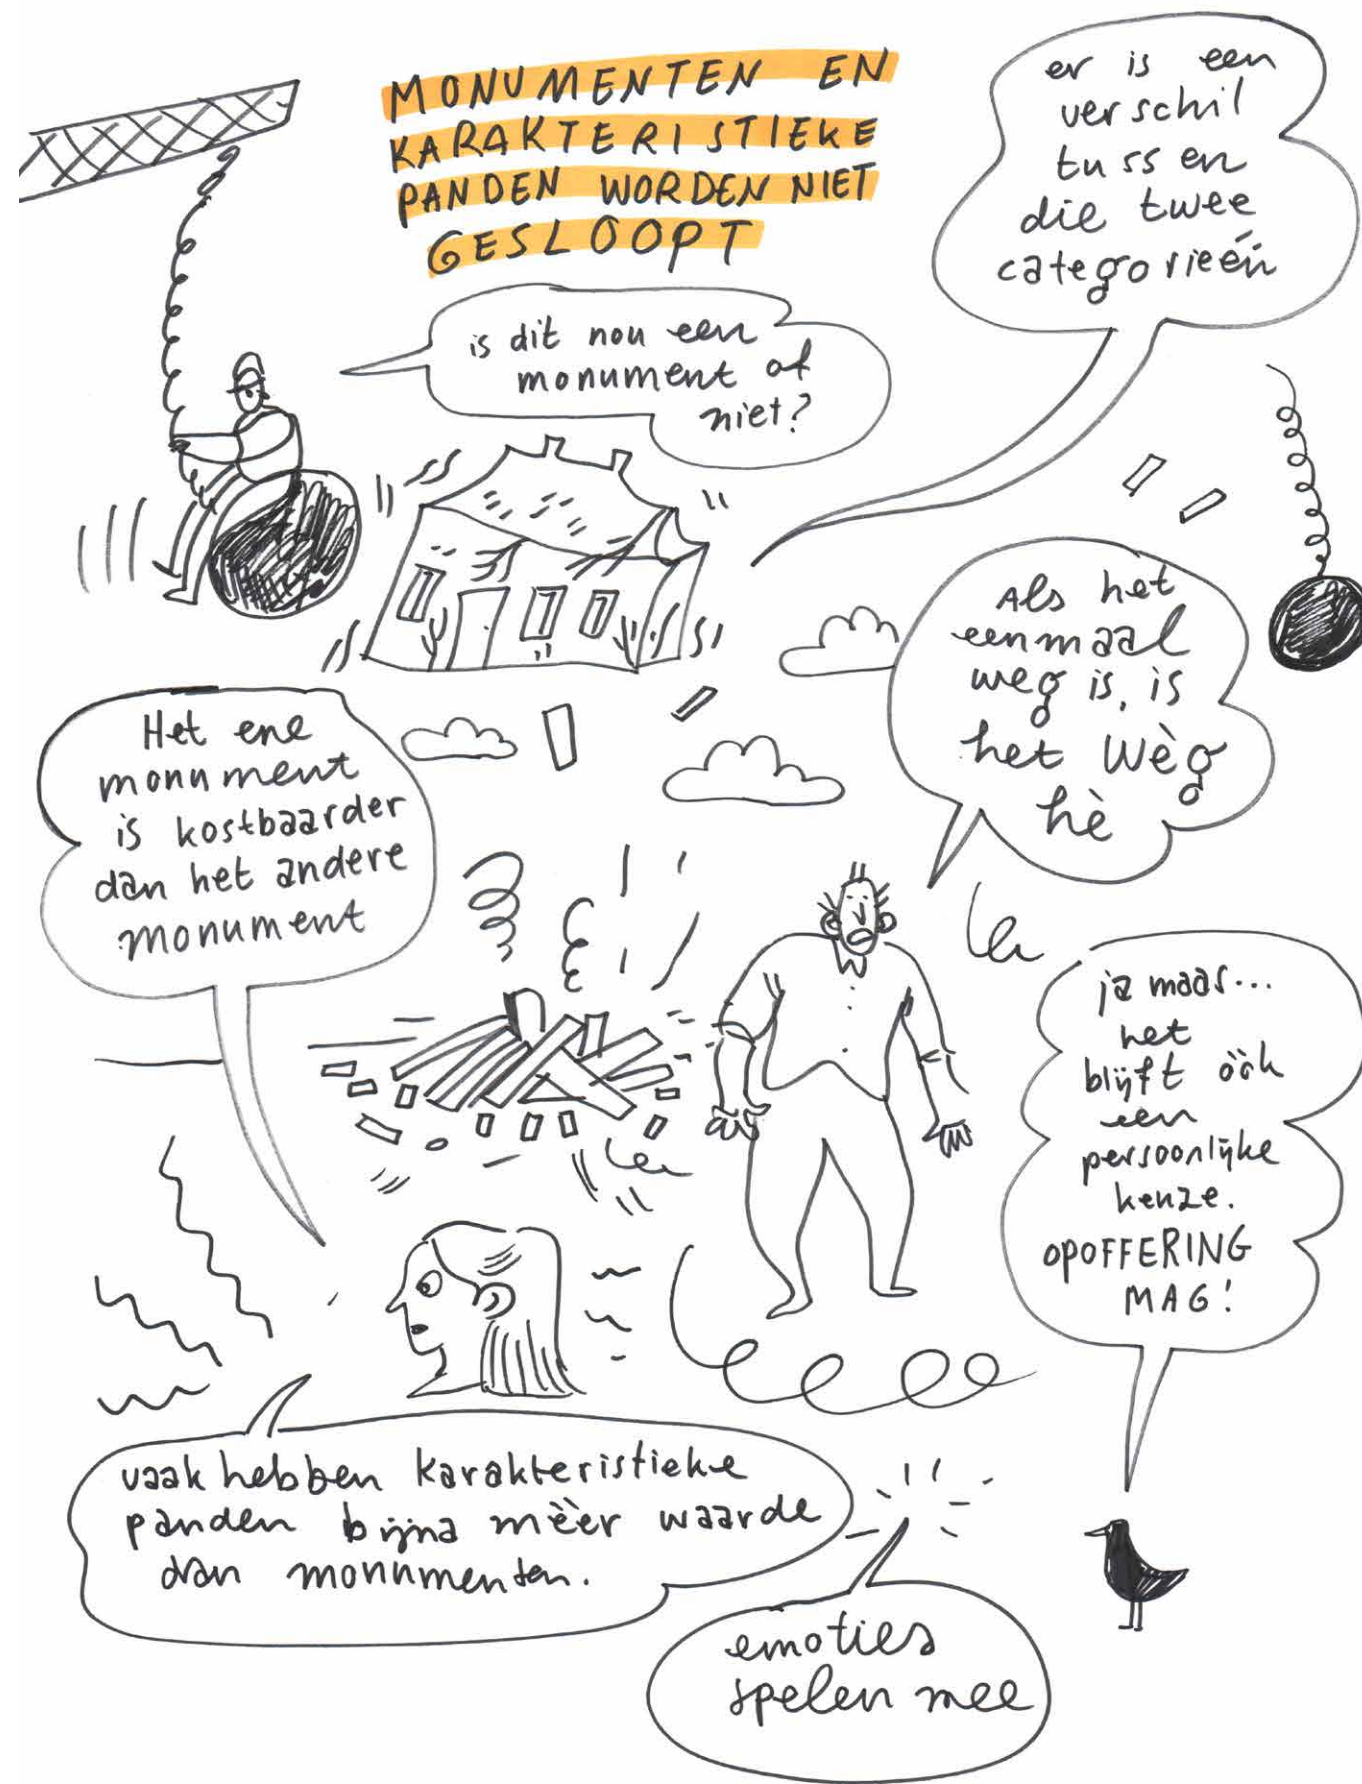 MONUMENTEN EN
KARAKTERISTIEKE
PANDEN WORDEN NIET
GESLOOPT
er is een
verschil
tussen
die twee
categorieën
is dit nou een
monument of
niet?
Als het
eenmaal
weg is, is
het wèg
hè
Het ene
monument
is kostbaarder
dan het andere
monument
ja maar...
het
blijft òòk
een
persoonlijke
keuze.
OPOFFERING
MAG!
vaak hebben karakteristieke
panden bijna mèèr waarde
dan monumenten.
emoties
spelen mee